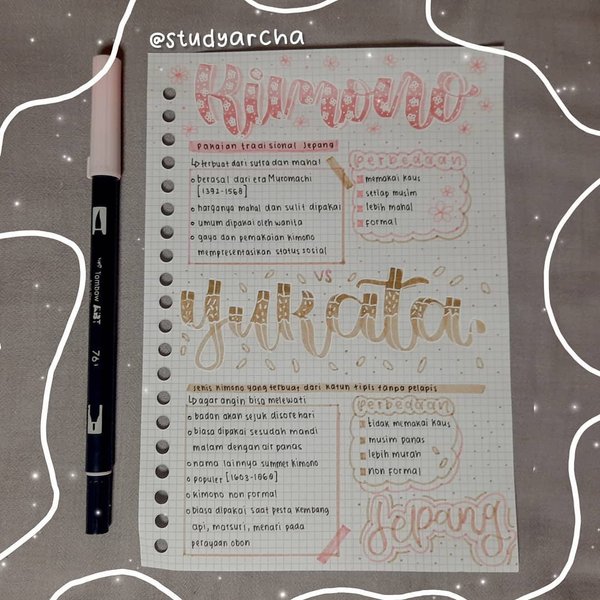 @studyarcha
Kimono
pakaian tradisional Jepang
↳ terbuat dari sutra dan mahal
o berasal dari era Muromachi
[1392-1568]
o harganya mahal dan sulit dipakai
o umum dipakai oleh wanita
o gaya dan pemakaian kimono
mempresentasikan status sosial
perbedaan
memakai kaus
setiap musim
lebih mahal
formal
vs
yukata
Jenis kimono yang terbuat dari katun tipis tanpa pelapis
↳ agar angin bisa melewati
o badan akan sejuk disorehari
o biasa dipakai sesudah mandi
malam dengan air panas
o nama lainnya summer kimono
o populer [1603-1868]
o kimono non formal
o biasa dipakai saat pesta kembang
api, matsuri, menari pada
perayaan obon
perbedaan
tidak memakai kaus
musim panas
lebih murah
non formal
Jepang
Tombow ABT
761